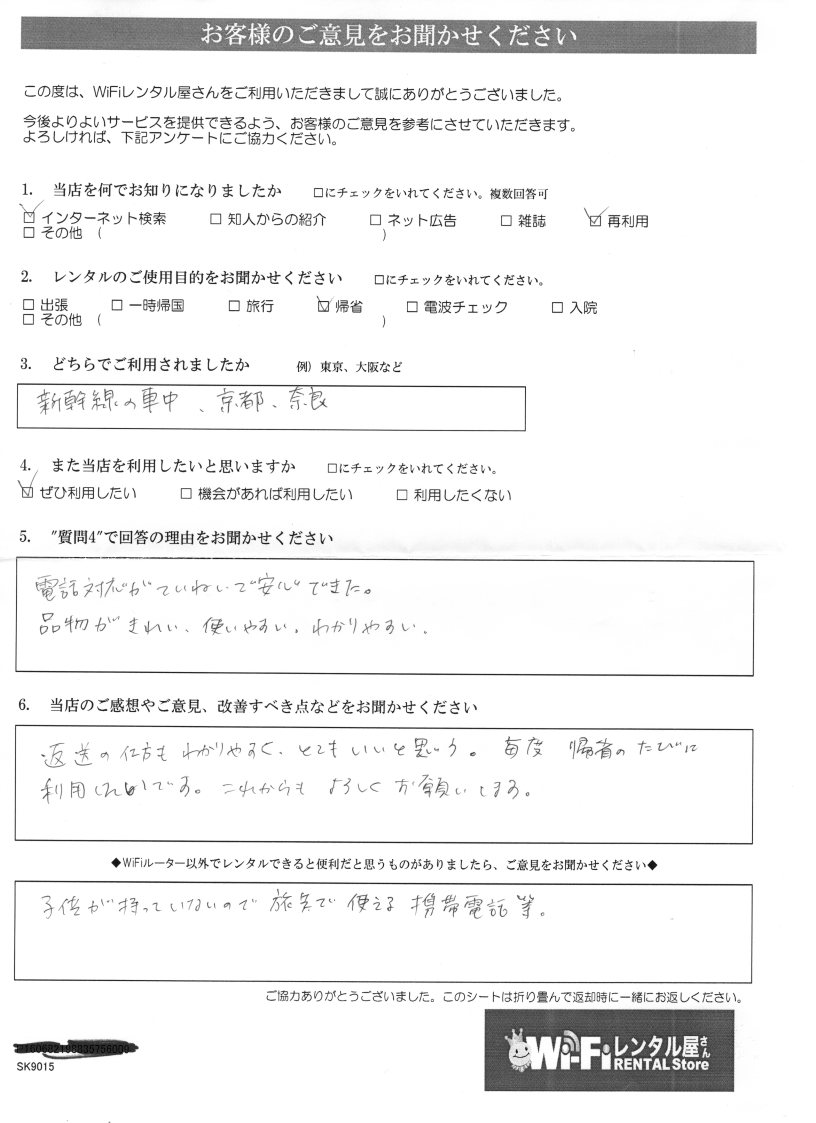 お客様のご意見をお聞かせください
この度は、WiFiレンタル屋さんをご利用いただきまして誠にありがとうございました。
今後よりよいサービスを提供できるよう、お客様のご意見を参考にさせていただきます。
よろしければ、下記アンケートにご協力ください。
1. 当店を何でお知りになりましたか □にチェックをいれてください。複数回答可
☑ インターネット検索 □ 知人からの紹介 □ ネット広告 □ 雑誌 ☑ 再利用
□ その他 ( )
2. レンタルのご使用目的をお聞かせください □にチェックをいれてください。
□ 出張 □ 一時帰国 □ 旅行 ☑ 帰省 □ 電波チェック □ 入院
□ その他 ( )
3. どちらでご利用されましたか 例）東京、大阪など
新幹線の車中、京都、奈良
4. また当店を利用したいと思いますか □にチェックをいれてください。
☑ ぜひ利用したい □ 機会があれば利用したい □ 利用したくない
5. "質問4"で回答の理由をお聞かせください
電話対応がていねいで安心できた。
品物がきれい、使いやすい。わかりやすい。
6. 当店のご感想やご意見、改善すべき点などをお聞かせください
返送の仕方もわかりやすく、とてもいいと思う。毎度 帰省のたびに
利用したいです。これからもよろしくお願いします。
◆WiFiルーター以外でレンタルできると便利だと思うものがありましたら、ご意見をお聞かせください◆
子供が持っていないので 旅先で 使える 携帯電話等。
ご協力ありがとうございました。このシートは折り畳んで返却時に一緒にお返しください。
SK9015
Wi-Fi レンタル屋さん
RENTAL Store